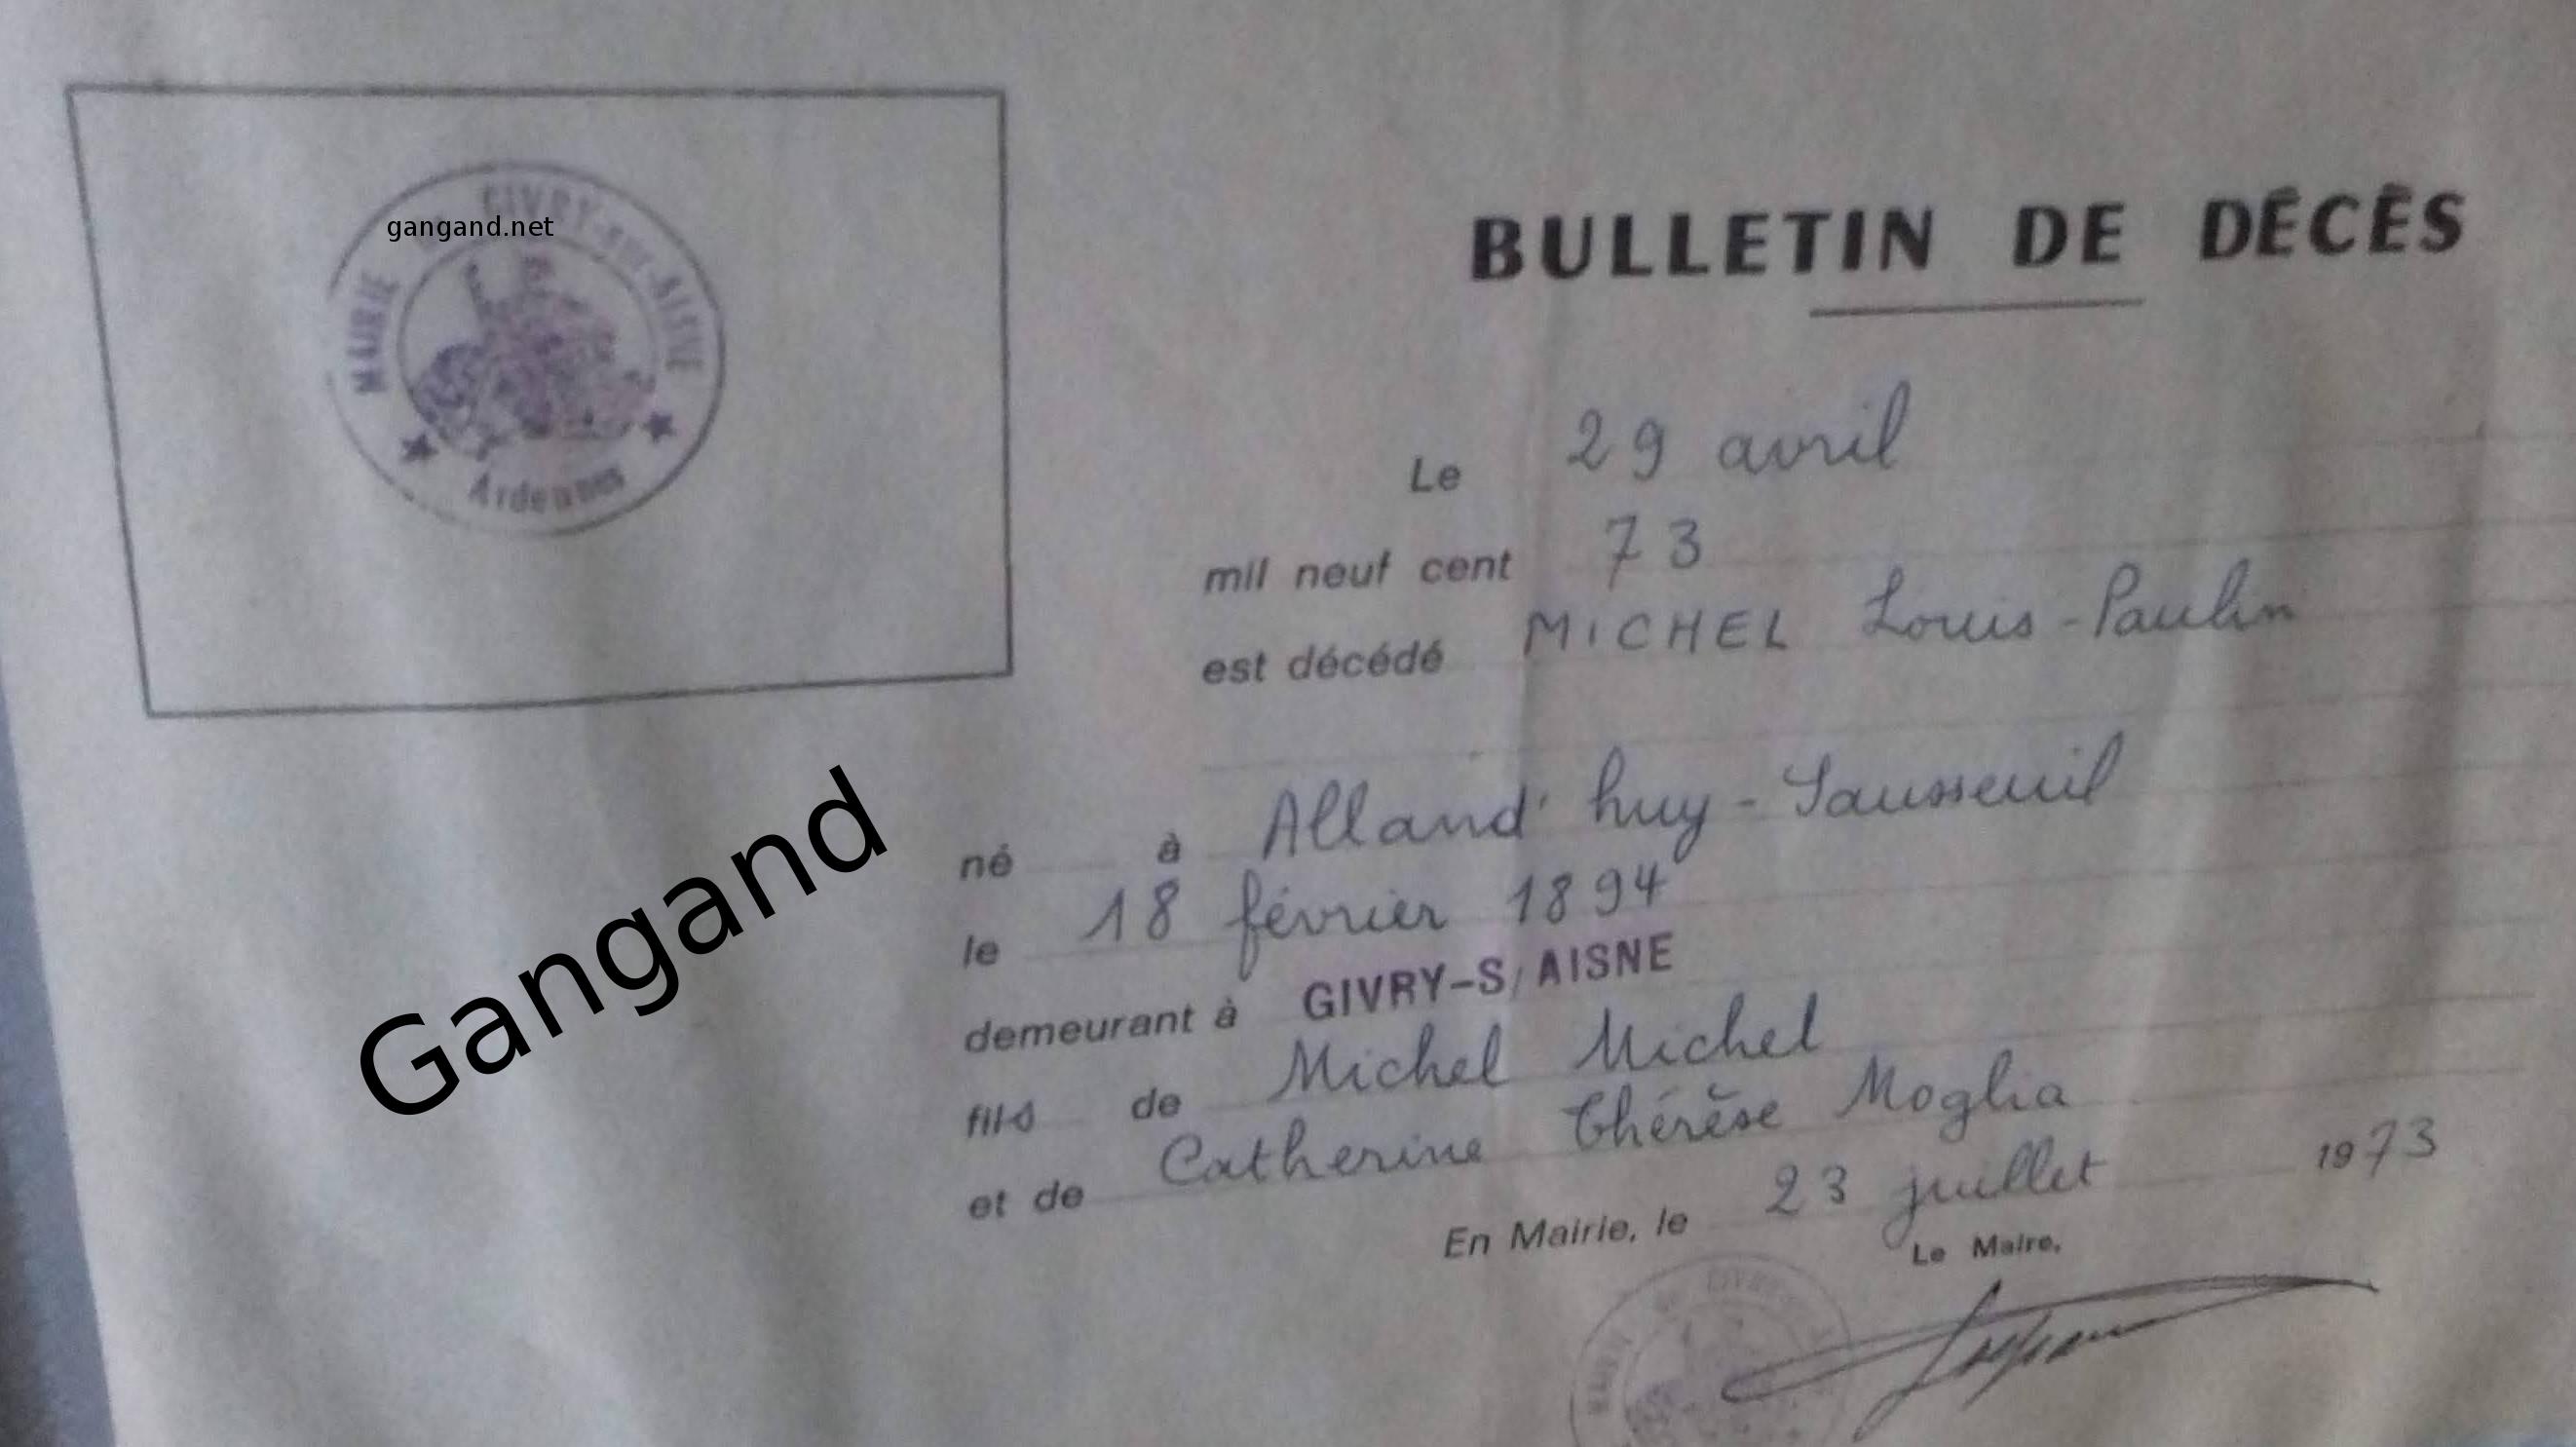 gangand.net
MAIRIE de GIVRY-sur-AISNE
Ardennes
BULLETIN DE DÉCÈS
Le 29 avril
mil neuf cent 73
est décédé MICHEL Louis-Paulin
né à Alland'huy-Sausseuil
le 18 février 1894
demeurant à GIVRY-S/AISNE
fils de Michel Michel
et de Catherine Thérèse Moglia
En Mairie, le 23 juillet 1973
Le Maire,
Gangand